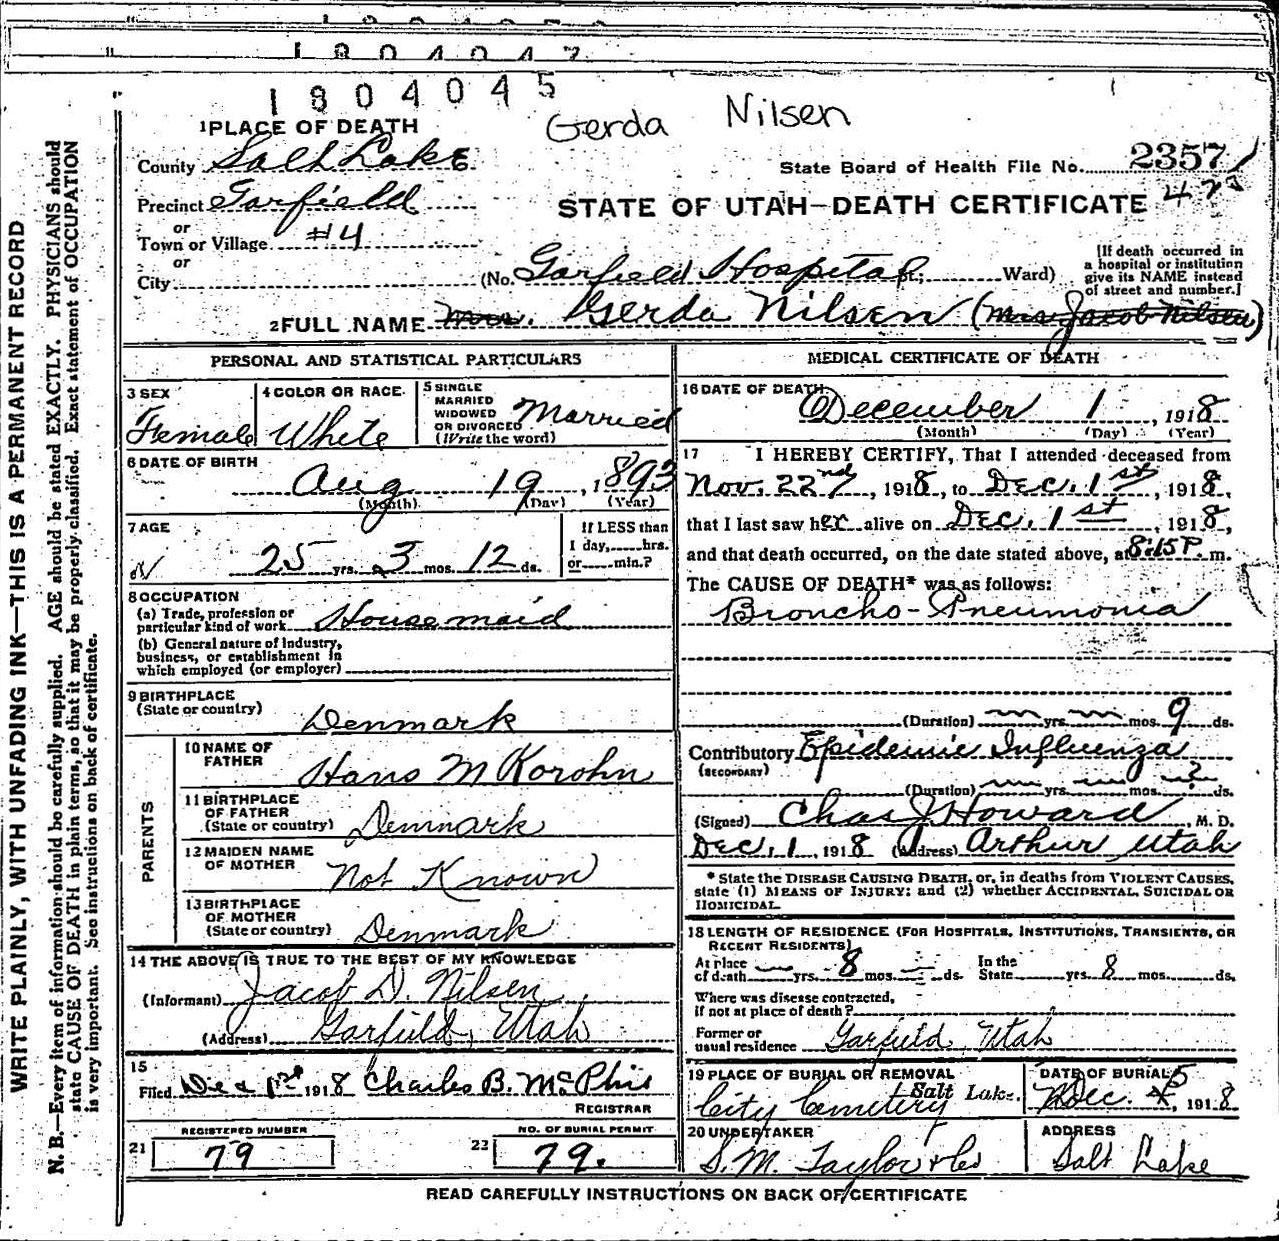 1804047
1804045
Gerda Nilsen
1 PLACE OF DEATH
County Salt Lake
State Board of Health File No. 2357
Precinct Garfield
STATE OF UTAH—DEATH CERTIFICATE
or
Town or Village #4
or
City (No. Garfield Hospital St.; Ward)
[If death occurred in
a hospital or institution
give its NAME instead
of street and number.]
2 FULL NAME Mrs. Gerda Nilsen (Mrs Jacob Nilsen)
PERSONAL AND STATISTICAL PARTICULARS
3 SEX
Female
4 COLOR OR RACE
White
5 SINGLE
MARRIED
WIDOWED
OR DIVORCED
(Write the word)
Married
6 DATE OF BIRTH
Aug 19, 1893
(Month) (Day) (Year)
7 AGE
25 yrs. 3 mos. 12 ds.
If LESS than
1 day,.....hrs.
or.....min.?
8 OCCUPATION
(a) Trade, profession or
particular kind of work Housemaid
(b) General nature of industry,
business, or establishment in
which employed (or employer)
9 BIRTHPLACE
(State or country)
Denmark
PARENTS
10 NAME OF
FATHER
Hans M Korohn
11 BIRTHPLACE
OF FATHER
(State or country) Denmark
12 MAIDEN NAME
OF MOTHER
Not Known
13 BIRTHPLACE
OF MOTHER
(State or country) Denmark
14 THE ABOVE IS TRUE TO THE BEST OF MY KNOWLEDGE
(Informant) Jacob D. Nilsen
(Address) Garfield, Utah
15
Filed 1918 Charles B. McPhie
REGISTRAR
REGISTERED NUMBER
21 79
NO. OF BURIAL PERMIT
22 79.
MEDICAL CERTIFICATE OF DEATH
16 DATE OF DEATH
December 1, 1918
(Month) (Day) (Year)
17 I HEREBY CERTIFY, That I attended deceased from
Nov. 22nd, 1918, to Dec. 1st, 1918,
that I last saw her alive on Dec. 1st, 1918,
and that death occurred, on the date stated above, at 8:15 P. m.
The CAUSE OF DEATH* was as follows:
Broncho-Pneumonia
(Duration) yrs. mos. 9 ds.
Contributory Epidemic Influenza
(SECONDARY)
(Duration) yrs. mos. ? ds.
(Signed) Chas J Howard, M. D.
Dec. 1, 1918 (Address) Arthur Utah
* State the DISEASE CAUSING DEATH, or, in deaths from VIOLENT CAUSES,
state (1) MEANS OF INJURY; and (2) whether ACCIDENTAL, SUICIDAL OR
HOMICIDAL.
18 LENGTH OF RESIDENCE (FOR HOSPITALS, INSTITUTIONS, TRANSIENTS, OR
RECENT RESIDENTS)
At place
of death yrs. 8 mos. ds.
In the
State yrs. 8 mos. ds.
Where was disease contracted,
if not at place of death?
Former or
usual residence Garfield, Utah
19 PLACE OF BURIAL OR REMOVAL
City Cemetery Salt Lake.
DATE OF BURIAL
Dec. 5, 1918
20 UNDERTAKER
S. M. Taylor & Co
ADDRESS
Salt Lake
READ CAREFULLY INSTRUCTIONS ON BACK OF CERTIFICATE
WRITE PLAINLY, WITH UNFADING INK—THIS IS A PERMANENT RECORD
N. B.—Every item of information should be carefully supplied. AGE should be stated EXACTLY. PHYSICIANS should
state CAUSE OF DEATH in plain terms, so that it may be properly classified. Exact statement of OCCUPATION
is very important. See instructions on back of certificate.